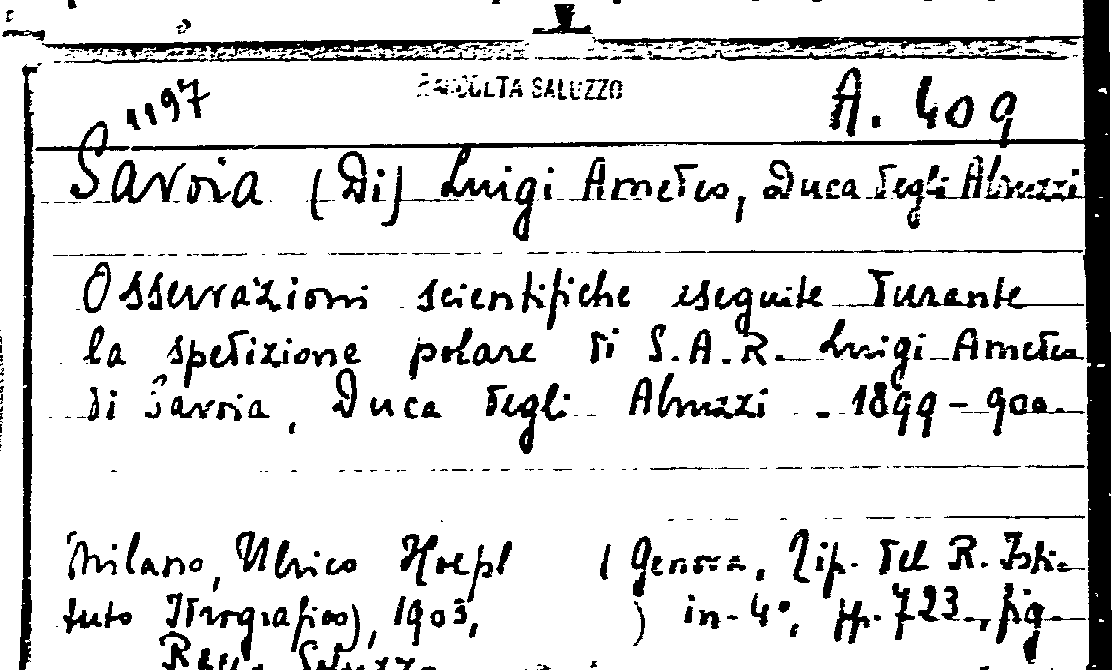 RACCOLTA SALUZZO
1197 A. 409
Savoia (Di) Luigi Amedeo, Duca degli Abruzzi
Osservazioni scientifiche eseguite durante
la spedizione polare di S.A.R. Luigi Amedeo
di Savoia, Duca degli Abruzzi - 1899-900.
Milano, Ulrico Hoepl ( Genova, Tip. del R. Isti-
tuto Idrografico), 1903, ) in-4°, pp. 723., fig.
Racc. Saluzzo